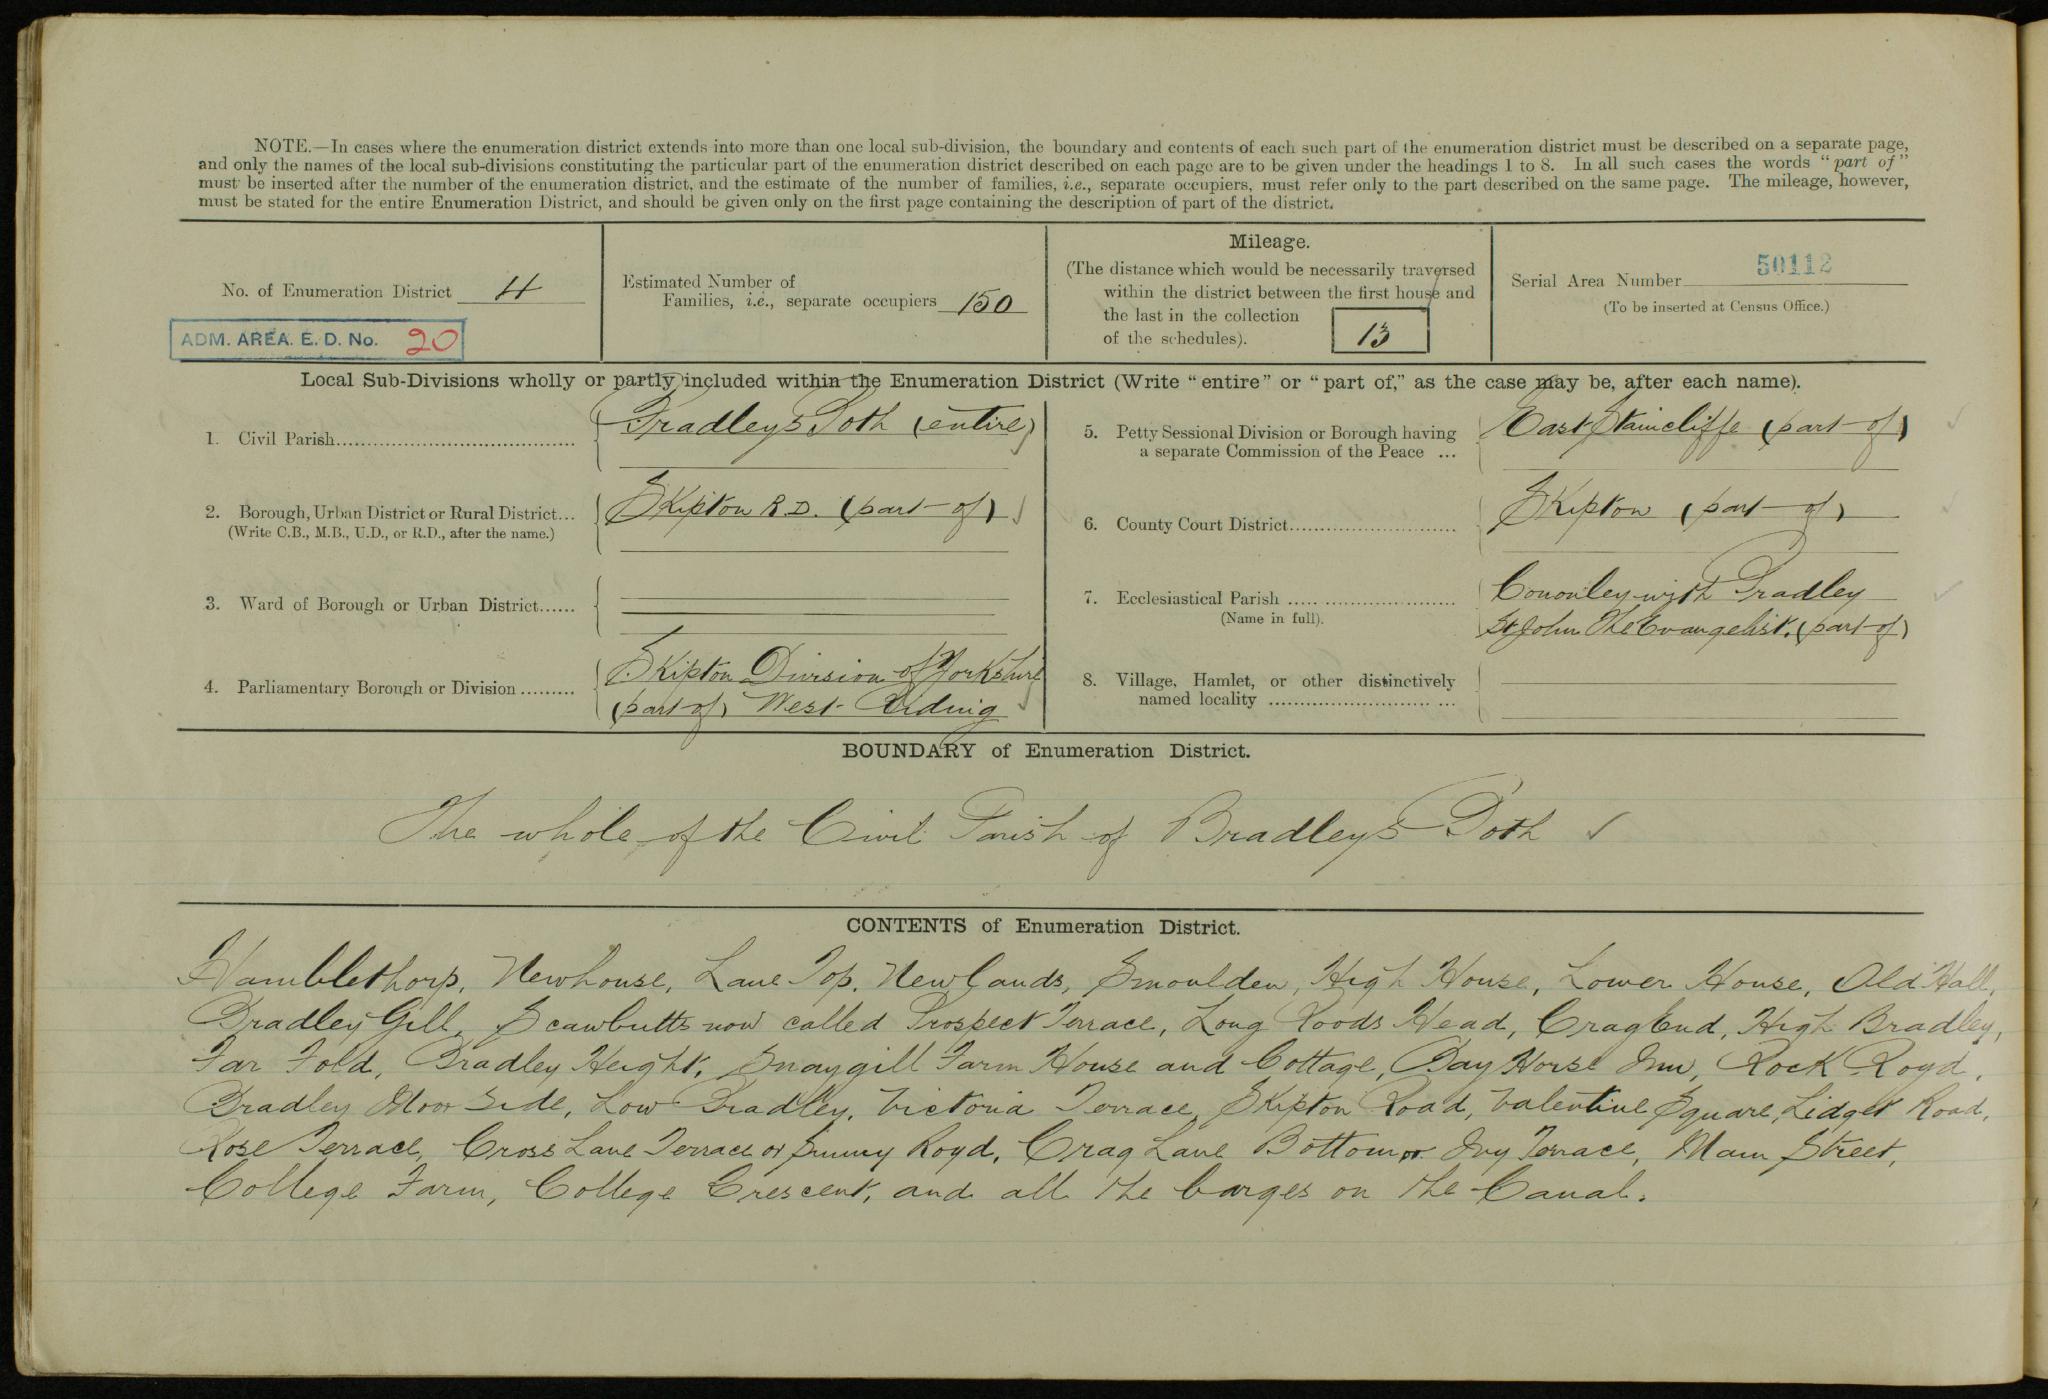 NOTE.—In cases where the enumeration district extends into more than one local sub-division, the boundary and contents of each such part of the enumeration district must be described on a separate page,
and only the names of the local sub-divisions constituting the particular part of the enumeration district described on each page are to be given under the headings 1 to 8. In all such cases the words "part of"
must be inserted after the number of the enumeration district, and the estimate of the number of families, i.e., separate occupiers, must refer only to the part described on the same page. The mileage, however,
must be stated for the entire Enumeration District, and should be given only on the first page containing the description of part of the district.
No. of Enumeration District 4
ADM. AREA. E. D. No. 20
Estimated Number of
Families, i.e., separate occupiers 150
Mileage.
(The distance which would be necessarily traversed
within the district between the first house and
the last in the collection
of the schedules).
13
Serial Area Number 50112
(To be inserted at Census Office.)
Local Sub-Divisions wholly or partly included within the Enumeration District (Write "entire" or "part of," as the case may be, after each name).
1. Civil Parish
Bradleys Both (entire)
2. Borough, Urban District or Rural District...
(Write C.B., M.B., U.D., or R.D., after the name.)
Skipton R.D. (part of)
3. Ward of Borough or Urban District......
4. Parliamentary Borough or Division .........
Skipton Division of Yorkshire
(part of) West Riding
5. Petty Sessional Division or Borough having
a separate Commission of the Peace ...
East Staincliffe (part of)
6. County Court District
Skipton (part of)
7. Ecclesiastical Parish
(Name in full).
Cononley with Bradley
St John The Evangelist. (part of)
8. Village, Hamlet, or other distinctively
named locality
BOUNDARY of Enumeration District.
The whole of the Civil Parish of Bradleys Both
CONTENTS of Enumeration District.
Hamblethorp, Newhouse, Lane Top, Newlands, Smoulden, High House, Lower House, Old Hall,
Bradley Gill, Scawbutts now called Prospect Terrace, Long Roods Head, Crag End, High Bradley,
Far Fold, Bradley Height, Snaygill Farm House and Cottage, Bay Horse Inn, Rock Royd,
Bradley Moor Side, Low Bradley, Victoria Terrace, Skipton Road, Valentine Square, Lidget Road,
Rose Terrace, Cross Lane Terrace or Jimmy Royd, Crag Lane Bottom or Ivy Terrace, Main Street,
College Farm, College Crescent, and all the barges on the Canal.